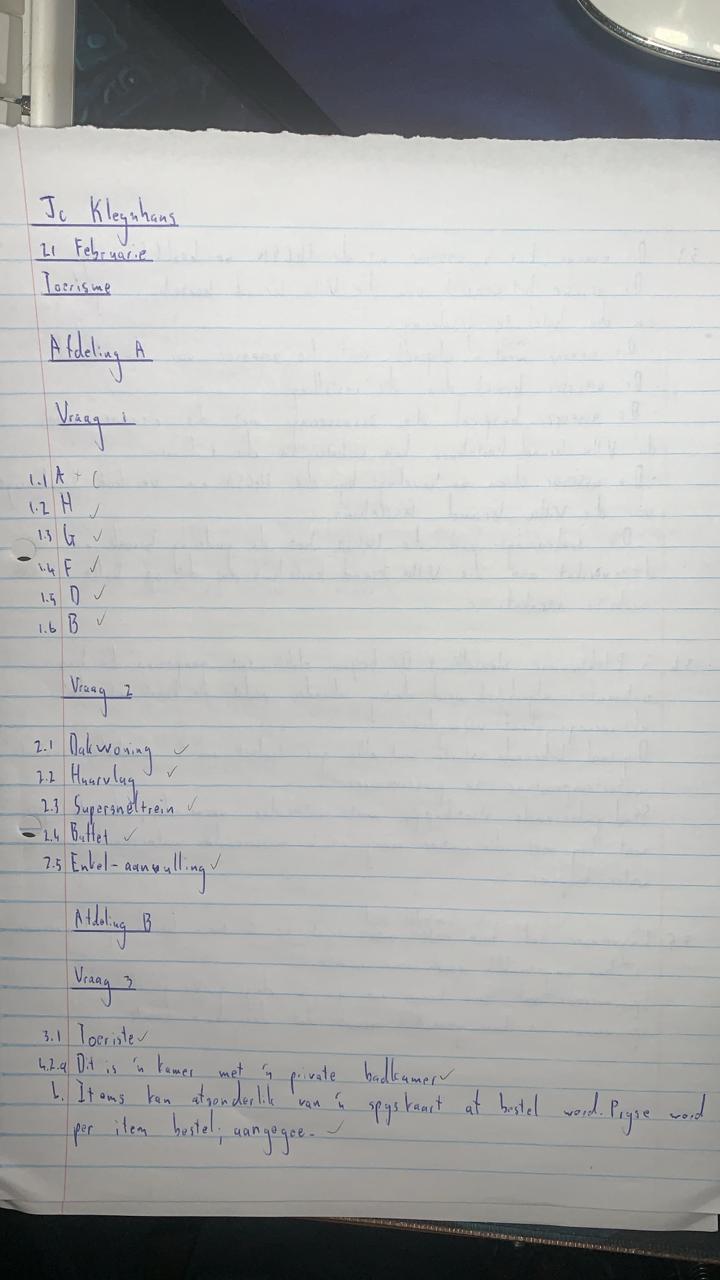 Jc Kleynhans
21 Februarie
Toerisme
Afdeling A
Vraag 1
1.1 A + C
1.2 H ✓
1.3 G ✓
1.4 F ✓
1.5 D ✓
1.6 B ✓
Vraag 2
2.1 Dakwoning ✓
2.2 Huurvlug ✓
2.3 Supersneltrein ✓
2.4 Buffet ✓
2.5 Enkel-aanvulling ✓
Afdeling B
Vraag 3
3.1 Toeriste ✓
4.2.a Dit is 'n kamer met 'n private badkamer ✓
b. Items kan afsonderlik van 'n spyskaart af bestel word. Pryse word
per item bestel, aangegee. ✓